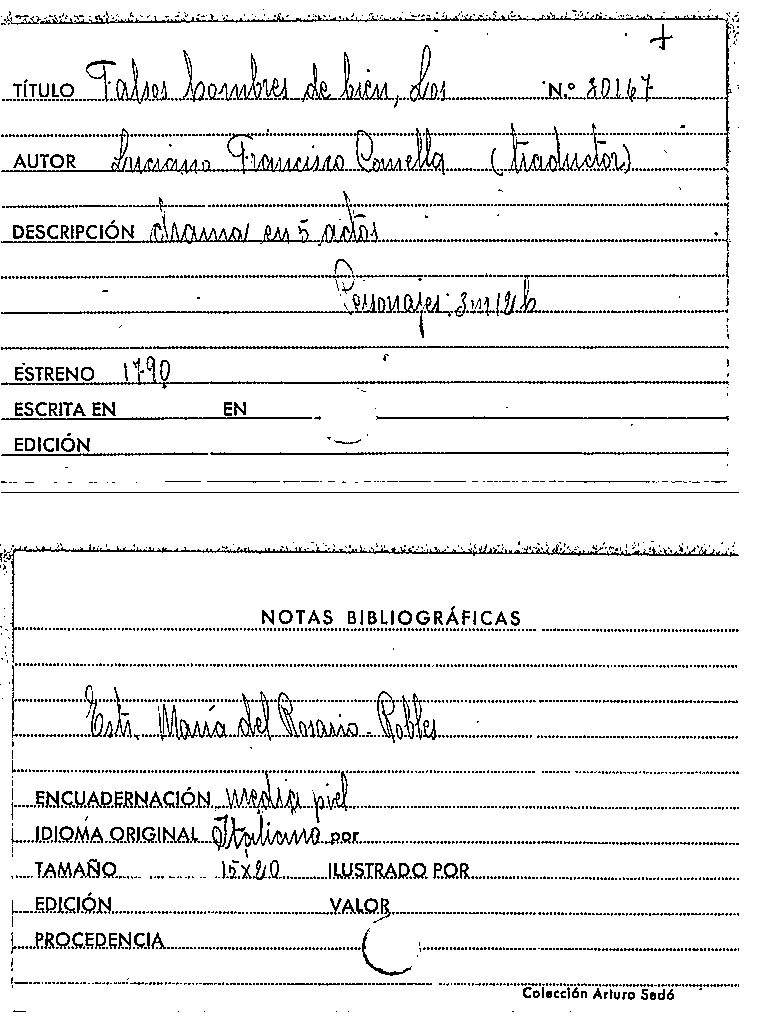 +
TÍTULO Falsos hombres de bien, Los N.º 80167
AUTOR Luciano Francisco Comella (traductor)
DESCRIPCIÓN drama en 5 actos
Personajes: 3m 12h
ESTRENO 1790
ESCRITA EN EN
EDICIÓN
NOTAS BIBLIOGRÁFICAS
Estr. María del Rosario - Robles
ENCUADERNACIÓN media piel
IDIOMA ORIGINAL Italiano por
TAMAÑO 15x20 ILUSTRADO POR
EDICIÓN VALOR
PROCEDENCIA
Colección Arturo Sedó